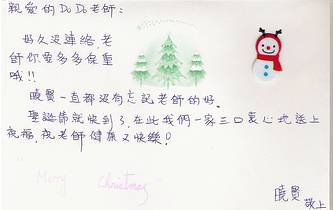 親愛的DoDo老師：
好久沒連絡,老
師你要多多保重
哦!!
曉貫一直都沒有忘記老師的好.
聖誕節就快到了,在此我們一家三口衷心地送上
祝福,祝老師健康又快樂!
Merry Christmas
曉貫
敬上